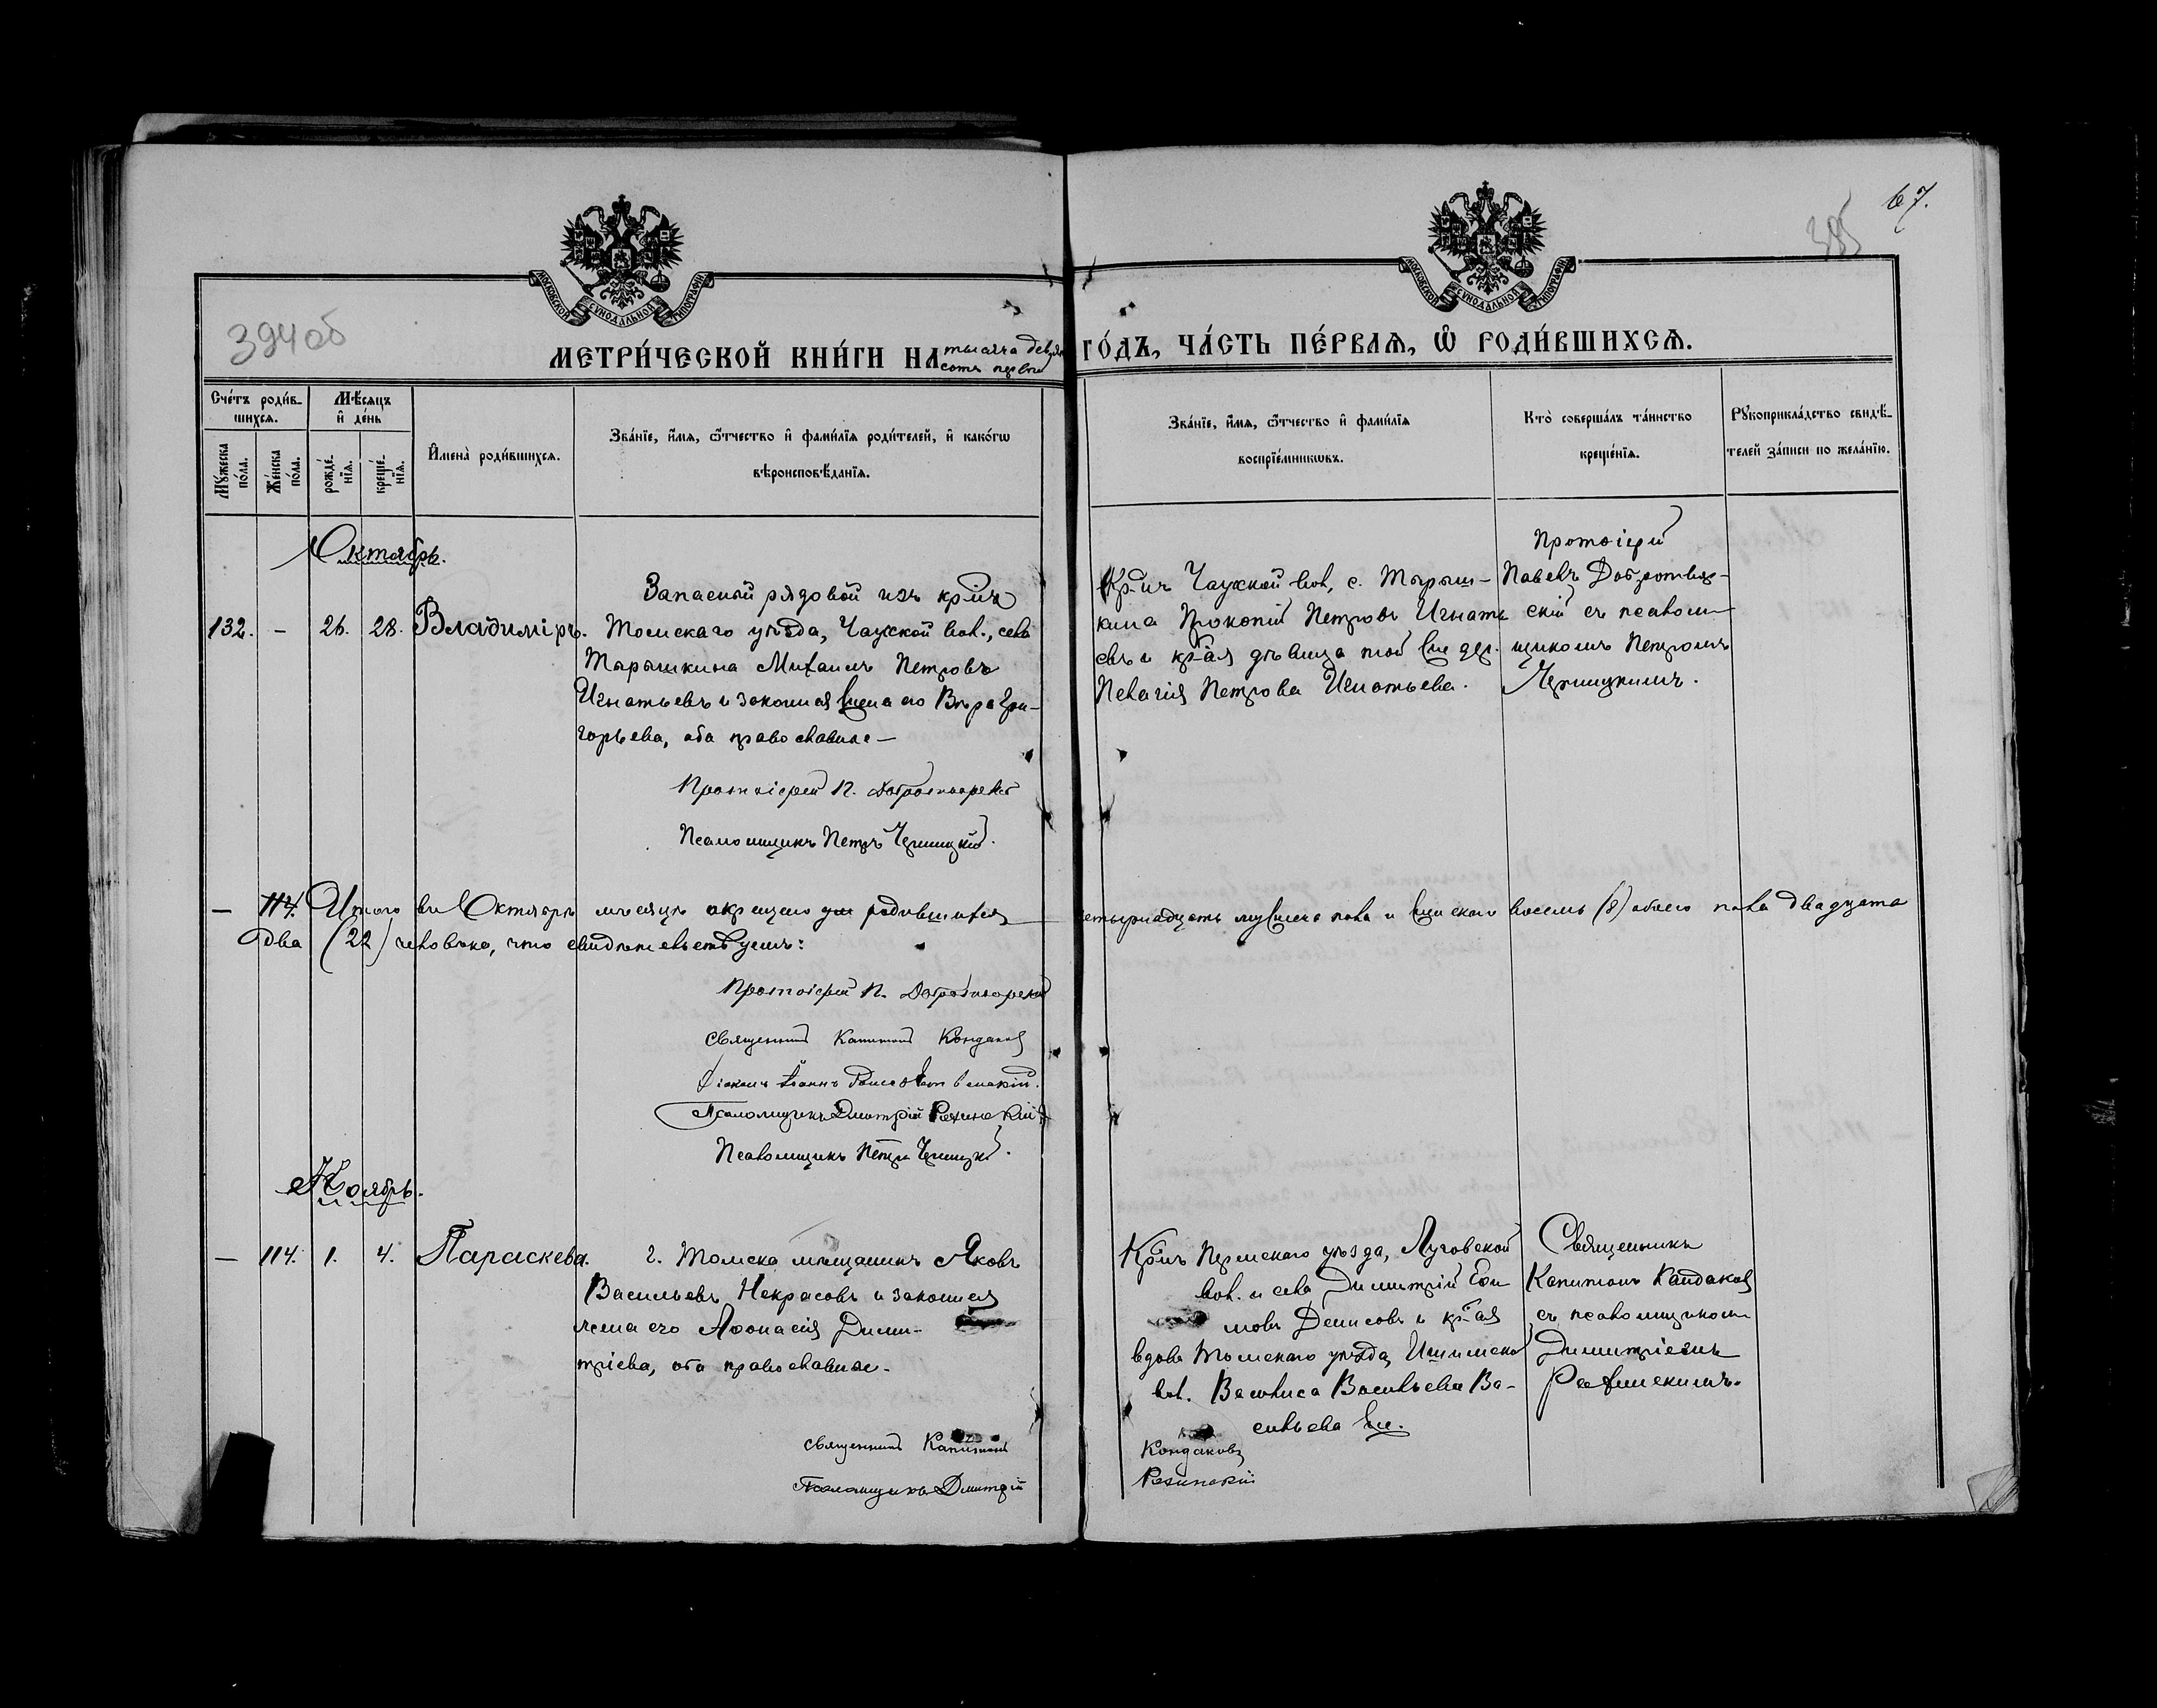 67.
385
394об
МОСКОВСКОЙ СѴНОДАЛЬНОЙ ТИПОГРАФІИ
МОСКОВСКОЙ СѴНОДАЛЬНОЙ ТИПОГРАФІИ
МЕТРИ́ЧЕСКОЙ КНИ́ГИ НА тысяча девять
сотъ первый
ГО́ДЪ, ЧА́СТЬ ПЕ́РВАѦ, Ѿ РОДИ́ВШИХСѦ.
Сче́тъ роди́в-
шихсѧ.
Мꙋ́жеска по́ла.
Же́нска по́ла.
Мѣ́сѧцъ и҆ де́нь
рожде́-
нїѧ.
креще́-
нїѧ.
И҆мена̀ роди́вшихсѧ.
Зва́нїе, и҆́мѧ, ѻ҆́тчество и҆ фами́лїѧ роди́телей, и҆ како́гѡ
вѣроисповѣ́данїѧ.
Зва́нїе, и҆́мѧ, ѻ҆́тчество и҆ фами́лїѧ
воспрїе́мникѡвъ.
Кто̀ соверша́лъ та́инство
креще́нїѧ.
Рꙋкоприкла́дство свидѣ́-
телей за́писи по жела́нїю.
Октябрь.
132. — 26. 28. Владиміръ.
Запасный рядовой изъ кр-нъ
Томскаго уѣзда, Чаусской вол., села
Тырышкина Михаилъ Петровъ
Игнатьевъ и законная жена его Вѣра Гри-
горьева, оба православные —
Протоіерей П. Добротворскій
Псаломщикъ Петръ Черницкій.
Кр-нъ Чаусской вол, с. Тырыш-
кина Прокопій Петровъ Игнать
евъ и кр-ая дѣвица той же дер.
Пелагія Петрова Игнатьева.
Протоіерей
Павелъ Добротвор-
скій съ псалом-
щикомъ Петромъ
Черницкимъ.
— 114. Итого въ Октябрѣ мѣсяцѣ окрещено родившихся — четырнадцать мужеска пола и женскаго восемь (8) обоего пола двадцать
два (22) человѣка, что свидѣтельствуемъ:
Протоіерей П. Добротворскій
Священникъ Капитонъ Кондаковъ
Діаконъ Іоаннъ
Псаломщикъ Димитрій Ряжинскій
Псаломщикъ Петръ Черницкій.
Ноябрь.
— 114. 1. 4. Параскева.
г. Томска мѣщанинъ Яковъ
Васильевъ Некрасовъ и законная
жена его Аѳонасія Дими-
тріева, оба православные.
Священникъ Капитонъ Кондаковъ
Псаломщикъ Дмитрій Ряжинскій
Кр-нъ Пермскаго уѣзда, Луговской
вол. и села Димитрій Ефи
мовъ Денисовъ и кр-ая
вдова Томскаго уѣзда, Ишимской
вол. Василиса Васильева Ва-
сильева же.
Священникъ
Капитонъ Кандаковъ
съ псаломщикомъ
Димитріемъ
Ряжинскимъ.